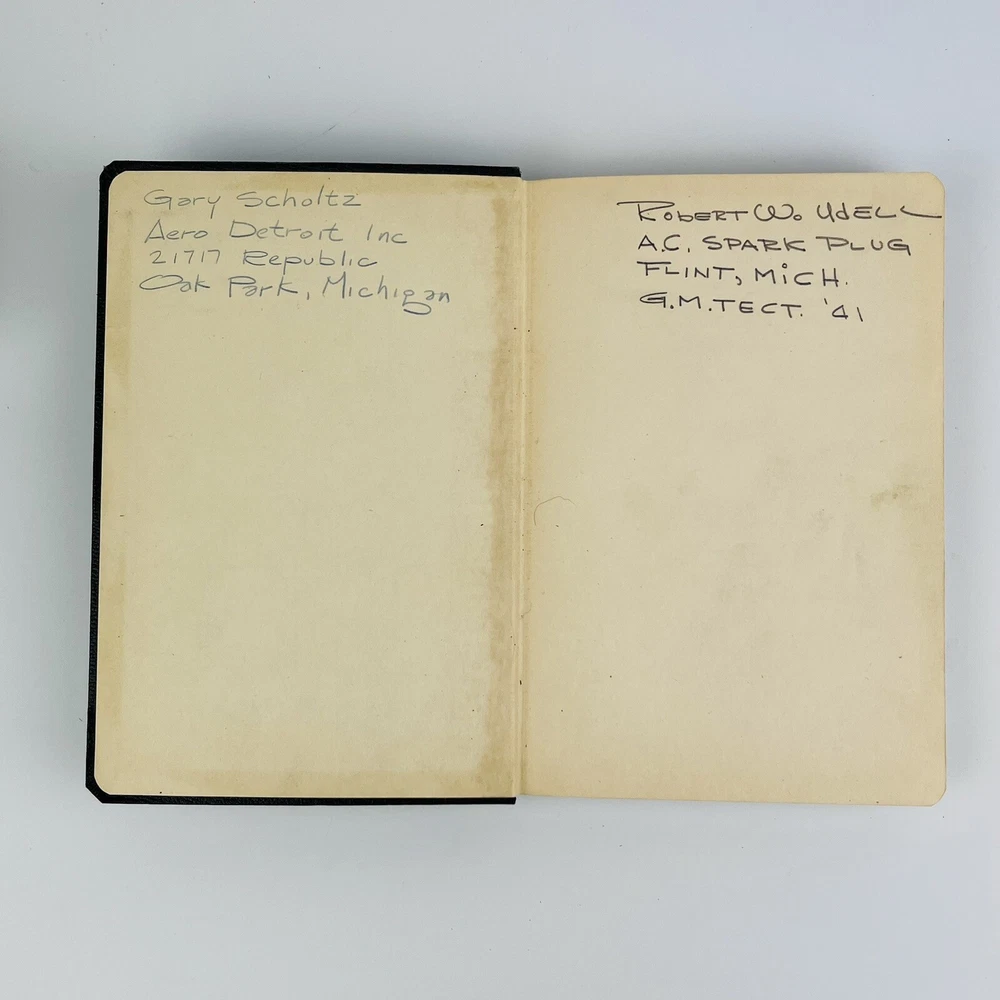 Gary Scholtz
Aero Detroit Inc
21717 Republic
Oak Park, Michigan
ROBERT W. UdELL
A.C. SPARK PLUG
FLINT, MiCH.
G.M.TECT. '41